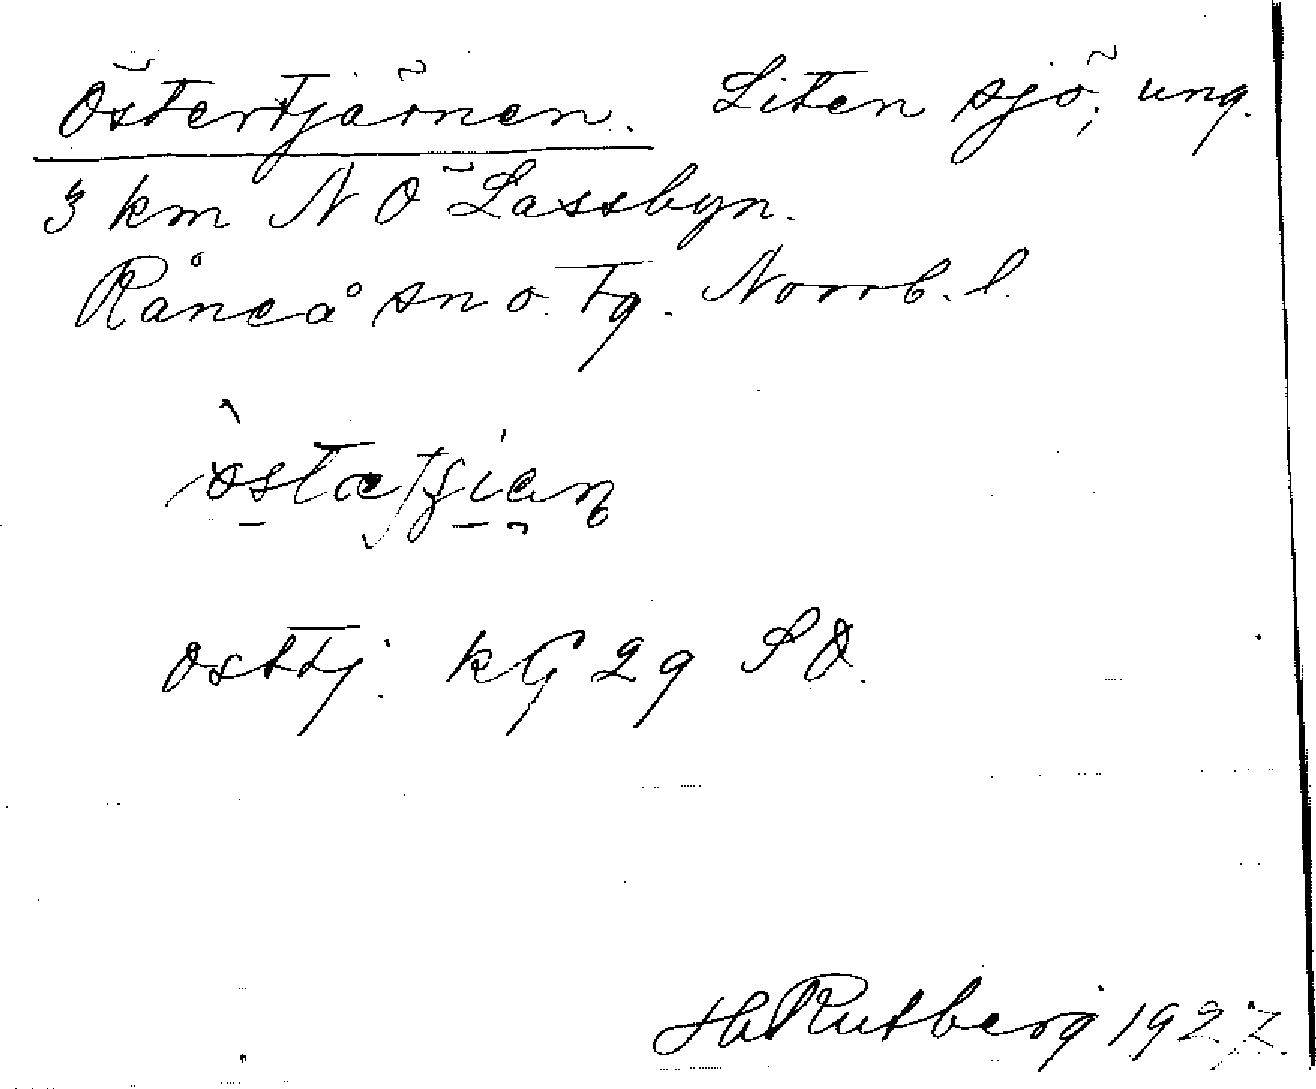 Östertjärnen. Liten sjö, ung.
3 km N Ö Lassbyn.
Råneå sn o. tg. Norrb. l.
osttj. kG 29 SO.
H Rutberg 1927.